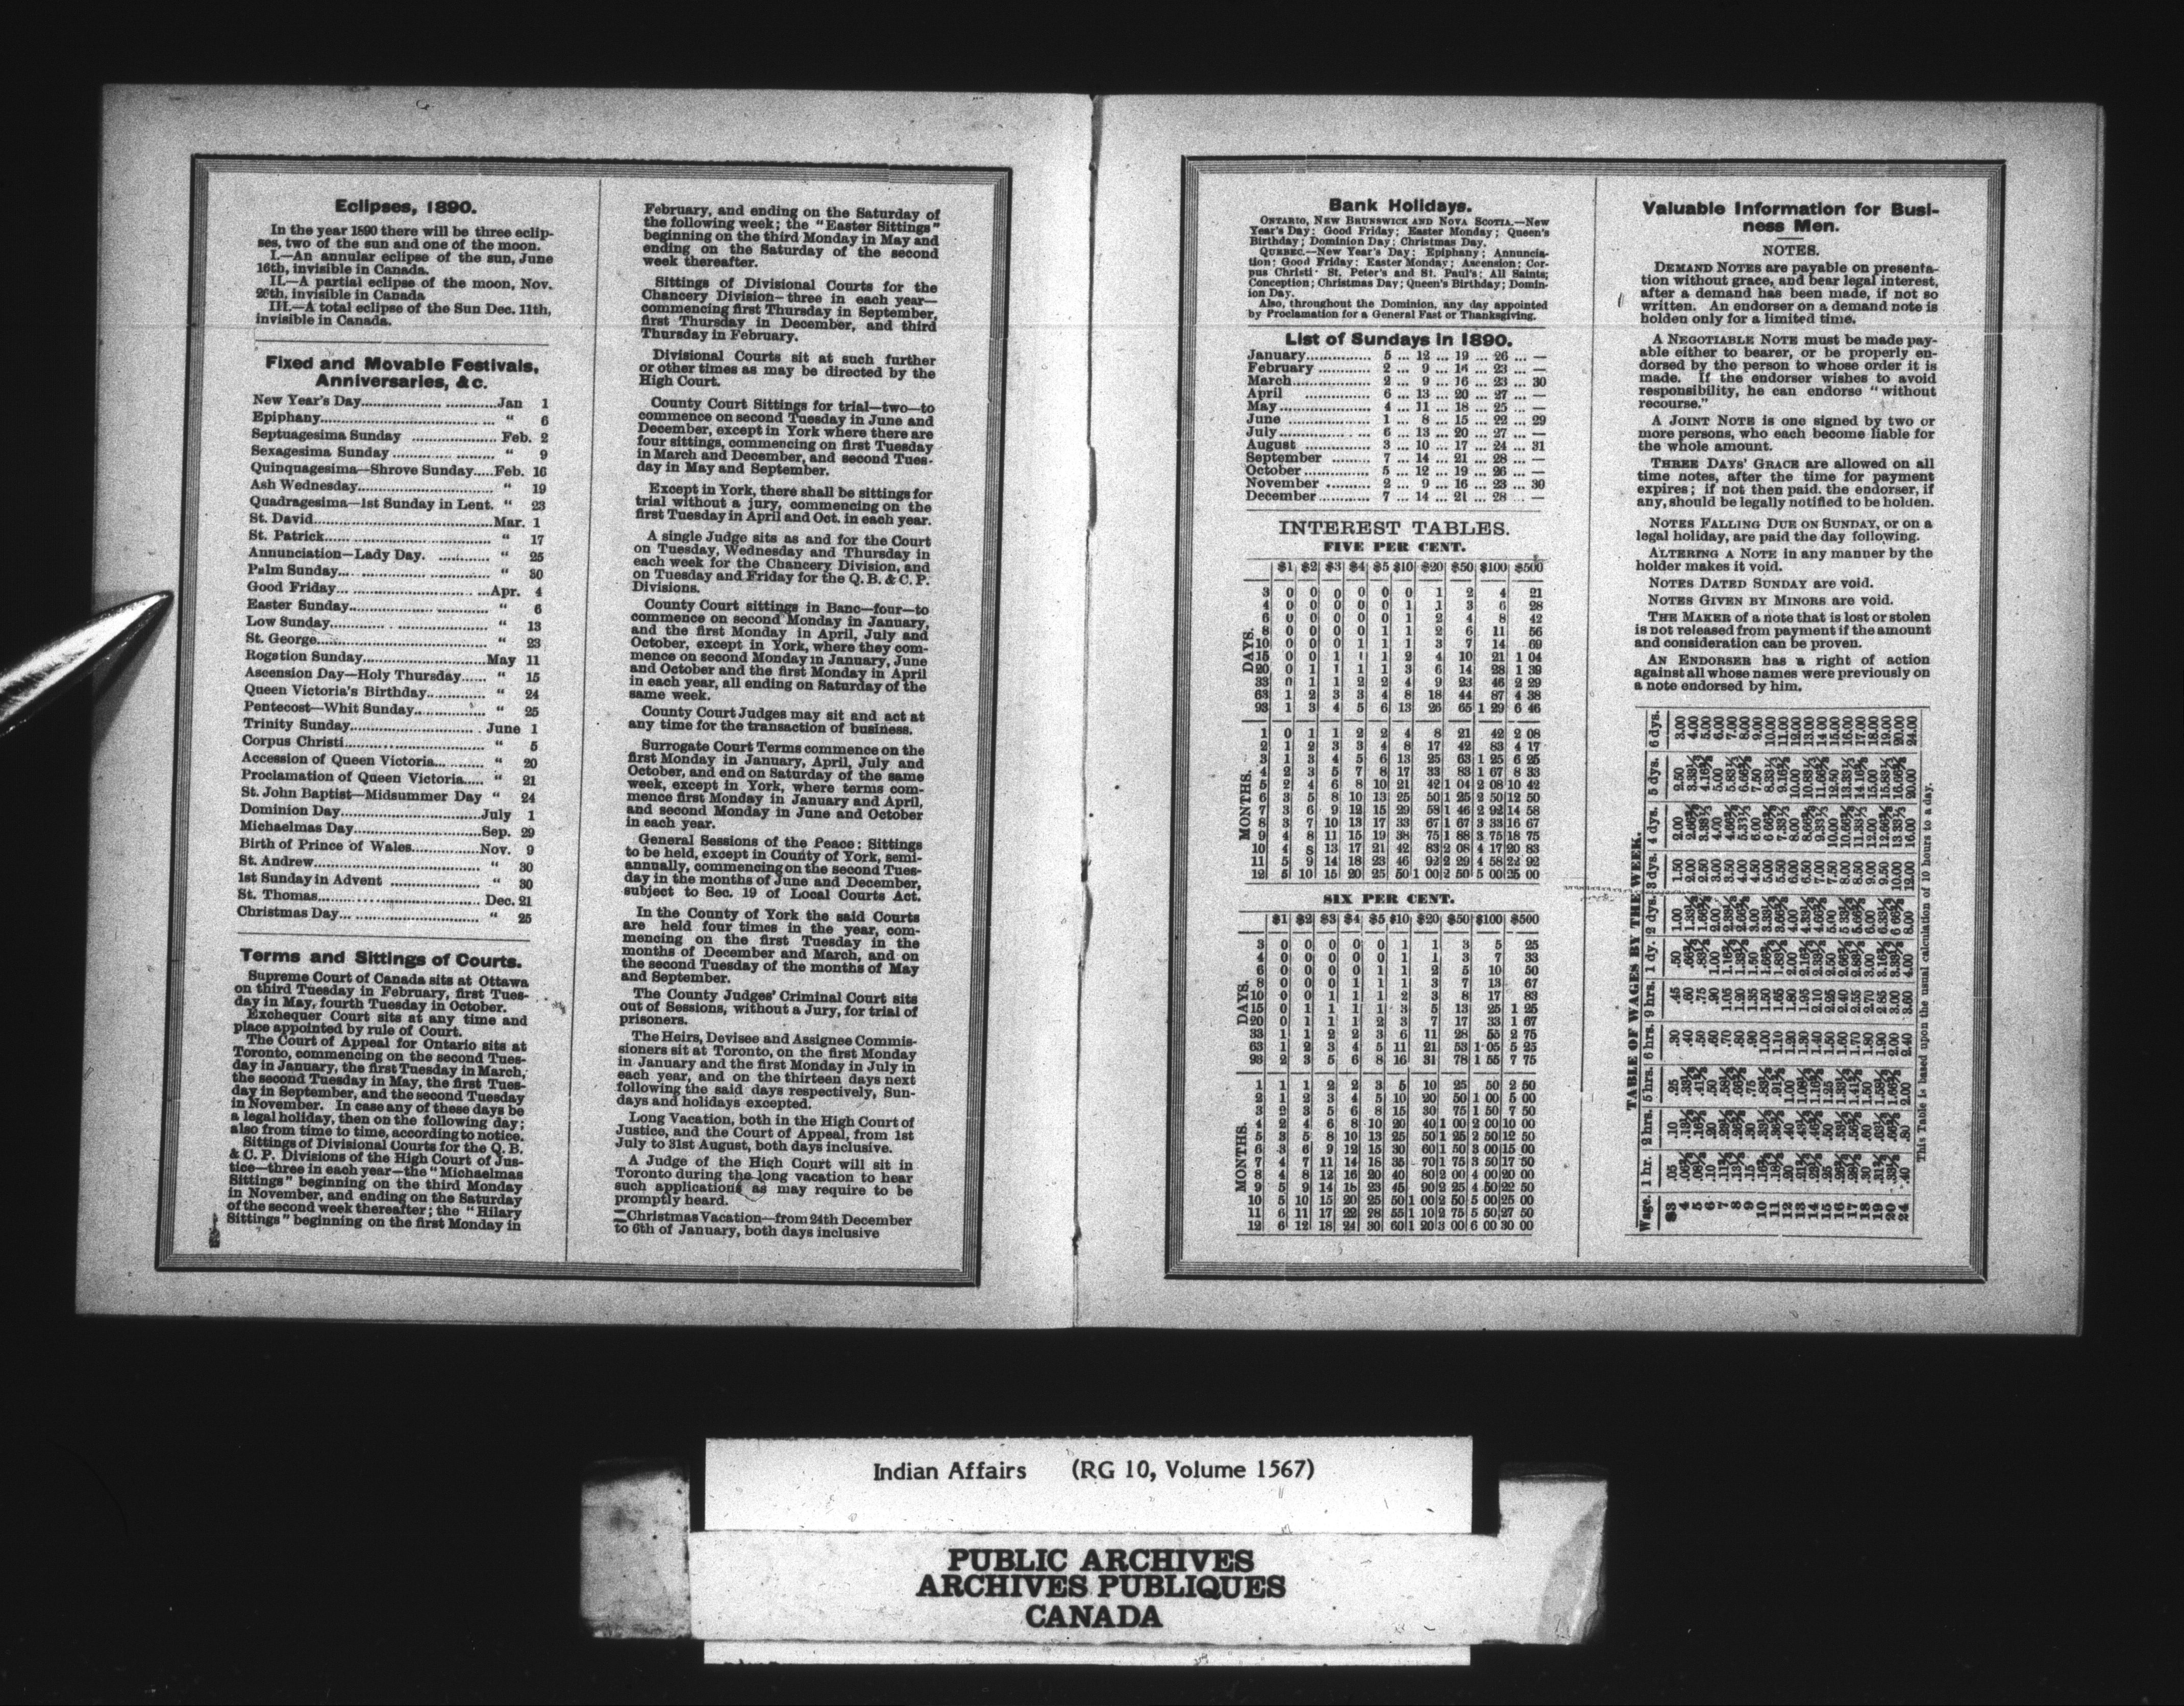 Eclipses, 1890.
In the year 1890 there will be three eclip-
ses, two of the sun and one of the moon.
I.—An annular eclipse of the sun, June
16th, invisible in Canada.
II.—A partial eclipse of the moon, Nov.
26th, invisible in Canada
III.—A total eclipse of the Sun Dec. 11th,
invisible in Canada.
Fixed and Movable Festivals,
Anniversaries, &c.
New Year's Day........Jan 1
Epiphany........ " 6
Septuagesima Sunday ........ Feb. 2
Sexagesima Sunday ........ " 9
Quinquagesima—Shrove Sunday.....Feb. 16
Ash Wednesday........ " 19
Quadragesima—1st Sunday in Lent. " 23
St. David........Mar. 1
St. Patrick........ " 17
Annunciation—Lady Day. ........ " 25
Palm Sunday........ " 30
Good Friday........Apr. 4
Easter Sunday........ " 6
Low Sunday........ " 13
St. George........ " 23
Rogation Sunday........May 11
Ascension Day—Holy Thursday...... " 15
Queen Victoria's Birthday........ " 24
Pentecost—Whit Sunday........ " 25
Trinity Sunday........June 1
Corpus Christi........ " 5
Accession of Queen Victoria... " 20
Proclamation of Queen Victoria..... " 21
St. John Baptist—Midsummer Day " 24
Dominion Day........July 1
Michaelmas Day........Sep. 29
Birth of Prince of Wales........Nov. 9
St. Andrew........ " 30
1st Sunday in Advent ........ " 30
St. Thomas........ Dec. 21
Christmas Day........ " 25
Terms and Sittings of Courts.
Supreme Court of Canada sits at Ottawa
on third Tuesday in February, first Tues-
day in May, fourth Tuesday in October.
Exchequer Court sits at any time and
place appointed by rule of Court.
The Court of Appeal for Ontario sits at
Toronto, commencing on the second Tues-
day in January, the first Tuesday in March,
the second Tuesday in May, the first Tues-
day in September, and the second Tuesday
in November. In case any of these days be
a legal holiday, then on the following day;
also from time to time, according to notice.
Sittings of Divisional Courts for the Q. B.
& C. P. Divisions of the High Court of Jus-
tice—three in each year—the "Michaelmas
Sittings" beginning on the third Monday
in November, and ending on the Saturday
of the second week thereafter; the "Hilary
Sittings" beginning on the first Monday in
February, and ending on the Saturday of
the following week; the "Easter Sittings"
beginning on the third Monday in May and
ending on the Saturday of the second
week thereafter.
Sittings of Divisional Courts for the
Chancery Division—three in each year—
commencing first Thursday in September,
first Thursday in December, and third
Thursday in February.
Divisional Courts sit at such further
or other times as may be directed by the
High Court.
County Court Sittings for trial—two—to
commence on second Tuesday in June and
December, except in York where there are
four sittings, commencing on first Tuesday
in March and December, and second Tues-
day in May and September.
Except in York, there shall be sittings for
trial without a jury, commencing on the
first Tuesday in April and Oct. in each year.
A single Judge sits as and for the Court
on Tuesday, Wednesday and Thursday in
each week for the Chancery Division, and
on Tuesday and Friday for the Q. B. & C. P.
Divisions.
County Court sittings in Banc—four—to
commence on second Monday in January,
and the first Monday in April, July and
October, except in York, where they com-
mence on second Monday in January, June
and October and the first Monday in April
in each year, all ending on Saturday of the
same week.
County Court Judges may sit and act at
any time for the transaction of business.
Surrogate Court Terms commence on the
first Monday in January, April, July and
October, and end on Saturday of the same
week, except in York, where terms com-
mence first Monday in January and April,
and second Monday in June and October
in each year.
General Sessions of the Peace: Sittings
to be held, except in County of York, semi-
annually, commencing on the second Tues-
day in the months of June and December,
subject to Sec. 19 of Local Courts Act.
In the County of York the said Courts
are held four times in the year, com-
mencing on the first Tuesday in the
months of December and March, and on
the second Tuesday of the months of May
and September.
The County Judges' Criminal Court sits
out of Sessions, without a Jury, for trial of
prisoners.
The Heirs, Devisee and Assignee Commis-
sioners sit at Toronto, on the first Monday
in January and the first Monday in July in
each year, and on the thirteen days next
following the said days respectively, Sun-
days and holidays excepted.
Long Vacation, both in the High Court of
Justice, and the Court of Appeal, from 1st
July to 31st August, both days inclusive.
A Judge of the High Court will sit in
Toronto during the long vacation to hear
such applications as may require to be
promptly heard.
Christmas Vacation—from 24th December
to 6th of January, both days inclusive
Bank Holidays.
ONTARIO, NEW BRUNSWICK AND NOVA SCOTIA.—New
Year's Day; Good Friday; Easter Monday; Queen's
Birthday; Dominion Day; Christmas Day.
QUEBEC.—New Year's Day; Epiphany; Annuncia-
tion; Good Friday; Easter Monday; Ascension; Cor-
pus Christi; St. Peter's and St. Paul's; All Saints;
Conception; Christmas Day; Queen's Birthday; Domin-
ion Day.
Also, throughout the Dominion, any day appointed
by Proclamation for a General Fast or Thanksgiving.
List of Sundays in 1890.
January............... 5 ... 12 ... 19 ... 26 ... —
February ............ 2 ... 9 ... 16 ... 23 ... —
March................. 2 ... 9 ... 16 ... 23 ... 30
April ............... 6 ... 13 ... 20 ... 27 ... —
May..................... 4 ... 11 ... 18 ... 25 ... —
June ................... 1 ... 8 ... 15 ... 22 ... 29
July..................... 6 ... 13 ... 20 ... 27 ... —
August ............... 3 ... 10 ... 17 ... 24 ... 31
September ......... 7 ... 14 ... 21 ... 28 ... —
October............... 5 ... 12 ... 19 ... 26 ... —
November .......... 2 ... 9 ... 16 ... 23 ... 30
December............ 7 ... 14 ... 21 ... 28 ... —
INTEREST TABLES.
FIVE PER CENT.
$1 $2 $3 $4 $5 $10 $20 $50 $100 $500
DAYS.
3 0 0 0 0 0 0 1 2 4 21
4 0 0 0 0 0 1 1 3 6 28
6 0 0 0 0 0 1 2 4 8 42
8 0 0 0 0 1 1 2 6 11 56
10 0 0 0 1 1 1 3 7 14 69
15 0 0 1 1 1 2 4 10 21 1 04
20 0 1 1 1 1 3 6 14 28 1 39
33 0 1 1 2 2 4 9 23 46 2 29
63 1 2 3 3 4 8 18 44 87 4 38
93 1 3 4 5 6 13 26 65 1 29 6 46
MONTHS.
1 0 1 1 2 2 4 8 21 42 2 08
2 1 2 3 3 4 8 17 42 83 4 17
3 1 3 4 5 6 13 25 63 1 25 6 25
4 2 3 5 7 8 17 33 83 1 67 8 33
5 2 4 6 8 10 21 42 1 04 2 08 10 42
6 3 5 8 10 13 25 50 1 25 2 50 12 50
7 3 6 9 12 15 29 58 1 46 2 92 14 58
8 3 7 10 13 17 33 67 1 67 3 33 16 67
9 4 8 11 15 19 38 75 1 88 3 75 18 75
10 4 8 13 17 21 42 83 2 08 4 17 20 83
11 5 9 14 18 23 46 92 2 29 4 58 22 92
12 5 10 15 20 25 50 1 00 2 50 5 00 25 00
SIX PER CENT.
$1 $2 $3 $4 $5 $10 $20 $50 $100 $500
DAYS.
3 0 0 0 0 0 1 1 3 5 25
4 0 0 0 0 0 1 1 3 7 33
6 0 0 0 0 1 1 2 5 10 50
8 0 0 0 1 1 1 3 7 13 67
10 0 0 1 1 1 2 3 8 17 83
15 0 1 1 1 1 3 5 13 25 1 25
20 0 1 1 1 2 3 7 17 33 1 67
33 1 1 2 2 3 6 11 28 55 2 75
63 1 2 3 4 5 11 21 53 1 05 5 25
93 2 3 5 6 8 16 31 78 1 55 7 75
MONTHS.
1 1 1 2 2 3 5 10 25 50 2 50
2 1 2 3 4 5 10 20 50 1 00 5 00
3 2 3 5 6 8 15 30 75 1 50 7 50
4 2 4 6 8 10 20 40 1 00 2 00 10 00
5 3 5 8 10 13 25 50 1 25 2 50 12 50
6 3 6 9 12 15 30 60 1 50 3 00 15 00
7 4 7 11 14 18 35 70 1 75 3 50 17 50
8 4 8 12 16 20 40 80 2 00 4 00 20 00
9 5 9 14 18 23 45 90 2 25 4 50 22 50
10 5 10 15 20 25 50 1 00 2 50 5 00 25 00
11 6 11 17 22 28 55 1 10 2 75 5 50 27 50
12 6 12 18 24 30 60 1 20 3 00 6 00 30 00
Valuable Information for Busi-
ness Men.
NOTES.
DEMAND NOTES are payable on presenta-
tion without grace, and bear legal interest,
after a demand has been made, if not so
written. An endorser on a demand note is
holden only for a limited time.
A NEGOTIABLE NOTE must be made pay-
able either to bearer, or be properly en-
dorsed by the person to whose order it is
made. If the endorser wishes to avoid
responsibility, he can endorse "without
recourse."
A JOINT NOTE is one signed by two or
more persons, who each become liable for
the whole amount.
THREE DAYS' GRACE are allowed on all
time notes, after the time for payment
expires; if not then paid. the endorser, if
any, should be legally notified to be holden.
NOTES FALLING DUE ON SUNDAY, or on a
legal holiday, are paid the day following.
ALTERING A NOTE in any manner by the
holder makes it void.
NOTES DATED SUNDAY are void.
NOTES GIVEN BY MINORS are void.
THE MAKER of a note that is lost or stolen
is not released from payment if the amount
and consideration can be proven.
AN ENDORSER has a right of action
against all whose names were previously on
a note endorsed by him.
TABLE OF WAGES BY THE WEEK.
Wage. 1 hr. 2 hrs. 5 hrs. 6 hrs. 9 hrs. 1 dy. 2 dys. 3 dys. 4 dys. 5 dys. 6 dys.
$3 .05 .10 .25 .30 .45 .50 1.00 1.50 2.00 2.50 3.00
4 .40 .60 2.00 4.00
5 .50 .75 2.50 5.00
6 .10 .20 .50 .60 .90 1.00 2.00 3.00 4.00 5.00 6.00
7 .70 1.05 3.50 7.00
8 .80 1.20 4.00 8.00
9 .15 .30 .75 .90 1.35 1.50 3.00 4.50 6.00 7.50 9.00
10 1.00 1.50 5.00 10.00
11 1.10 1.65 5.50 11.00
12 .20 .40 1.00 1.20 1.80 2.00 4.00 6.00 8.00 10.00 12.00
13 1.30 1.95 6.50 13.00
14 1.40 2.10 7.00 14.00
15 .25 .50 1.25 1.50 2.25 2.50 5.00 7.50 10.00 12.50 15.00
16 1.60 2.40 8.00 16.00
17 1.70 2.55 8.50 17.00
18 .30 .60 1.50 1.80 2.70 3.00 6.00 9.00 12.00 15.00 18.00
19 1.90 2.85 9.50 19.00
20 2.00 3.00 10.00 20.00
24 .40 .80 2.00 2.40 3.60 4.00 8.00 12.00 16.00 20.00 24.00
This Table is based upon the usual calculation of 10 hours to a day.
Indian Affairs (RG 10, Volume 1567)
PUBLIC ARCHIVES
ARCHIVES PUBLIQUES
CANADA